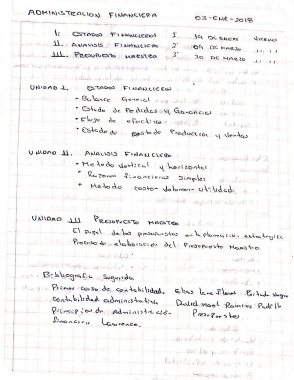 ADMINISTRACION FINANCIERA 03-ENE-2018
I. ESTADO FINANCIEROS 1° 19 DE ENERO VIERNES
II. ANALISIS FINANCIERO 2° 09 DE MARZO " "
III. PRESUPUESTO MAESTRO 3° 20 DE MARZO " "
UNIDAD I. ESTADO FINANCIEROS
• Balance General
• Estado de Perdidas y Ganancias
• Flujo de efectivo
• Estado de costo de Producción y Ventas
UNIDAD II. ANALISIS FINANCIERO
• Metodo Vertical y horizontal
• Razones financieras Simples
• Metodo costo-Volumen-Utilidad
UNIDAD III PRESUPUESTO MAESTRO
El papel de los presupuestos en la planeación estrategica
Proceso de elaboración del Presupuesto Maestro.
Bibliografia Sugerida
Primer curso de contabilidad. Elias Lara Flores
Contabilidad administrativa David Noel Ramirez Padilla
Principios de Administración Presupuestos
financiera Lawrence.